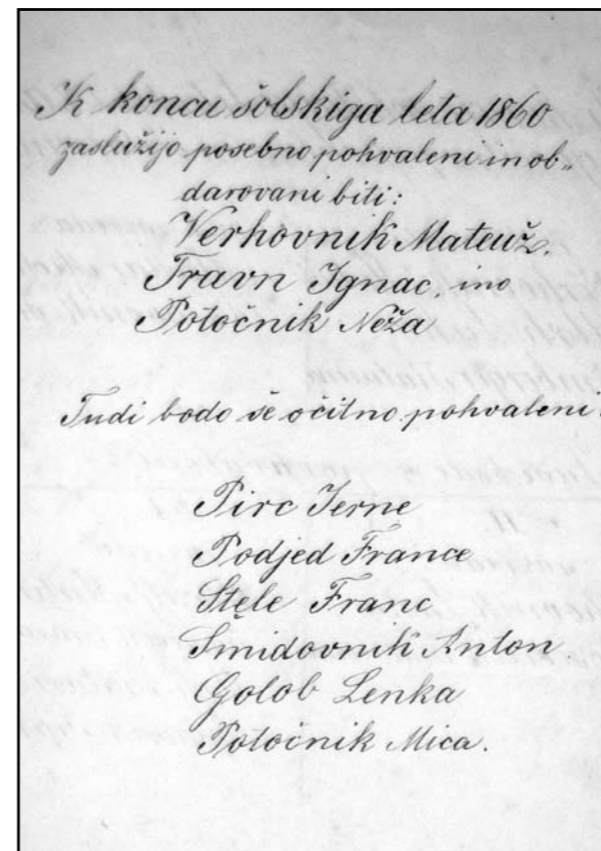 K koncu šolskiga leta 1860
zaslužijo posebno pohvaleni in ob„
darovani biti:
Verhovnik Mateuž.
Travn Ignac, ino
Potočnik Neža
Tudi bodo še očitno pohvaleni
Pirc Jerne
Podjed France
Stele Franc
Šmidovnik Anton.
Golob Lenka
Potočnik Mica.